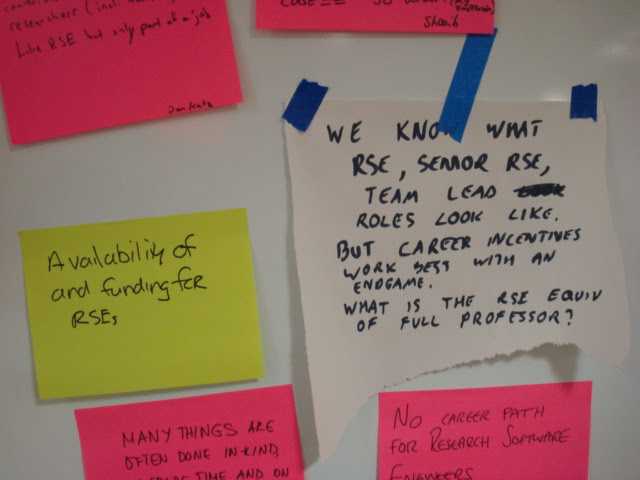 researchers (incl.
Like RSE but only part of a job
Shoaib
WE KNOW WHAT
RSE, SENIOR RSE,
TEAM LEAD
ROLES LOOK LIKE.
BUT CAREER INCENTIVES
WORK BEST WITH AN
ENDGAME.
WHAT IS THE RSE EQUIV
OF FULL PROFESSOR?
Availability of
and funding for
RSEs
MANY THINGS ARE
OFTEN DONE IN-KIND,
TIME AND ON
NO CAREER PATH
FOR RESEARCH SOFTWARE
ENGINEERS